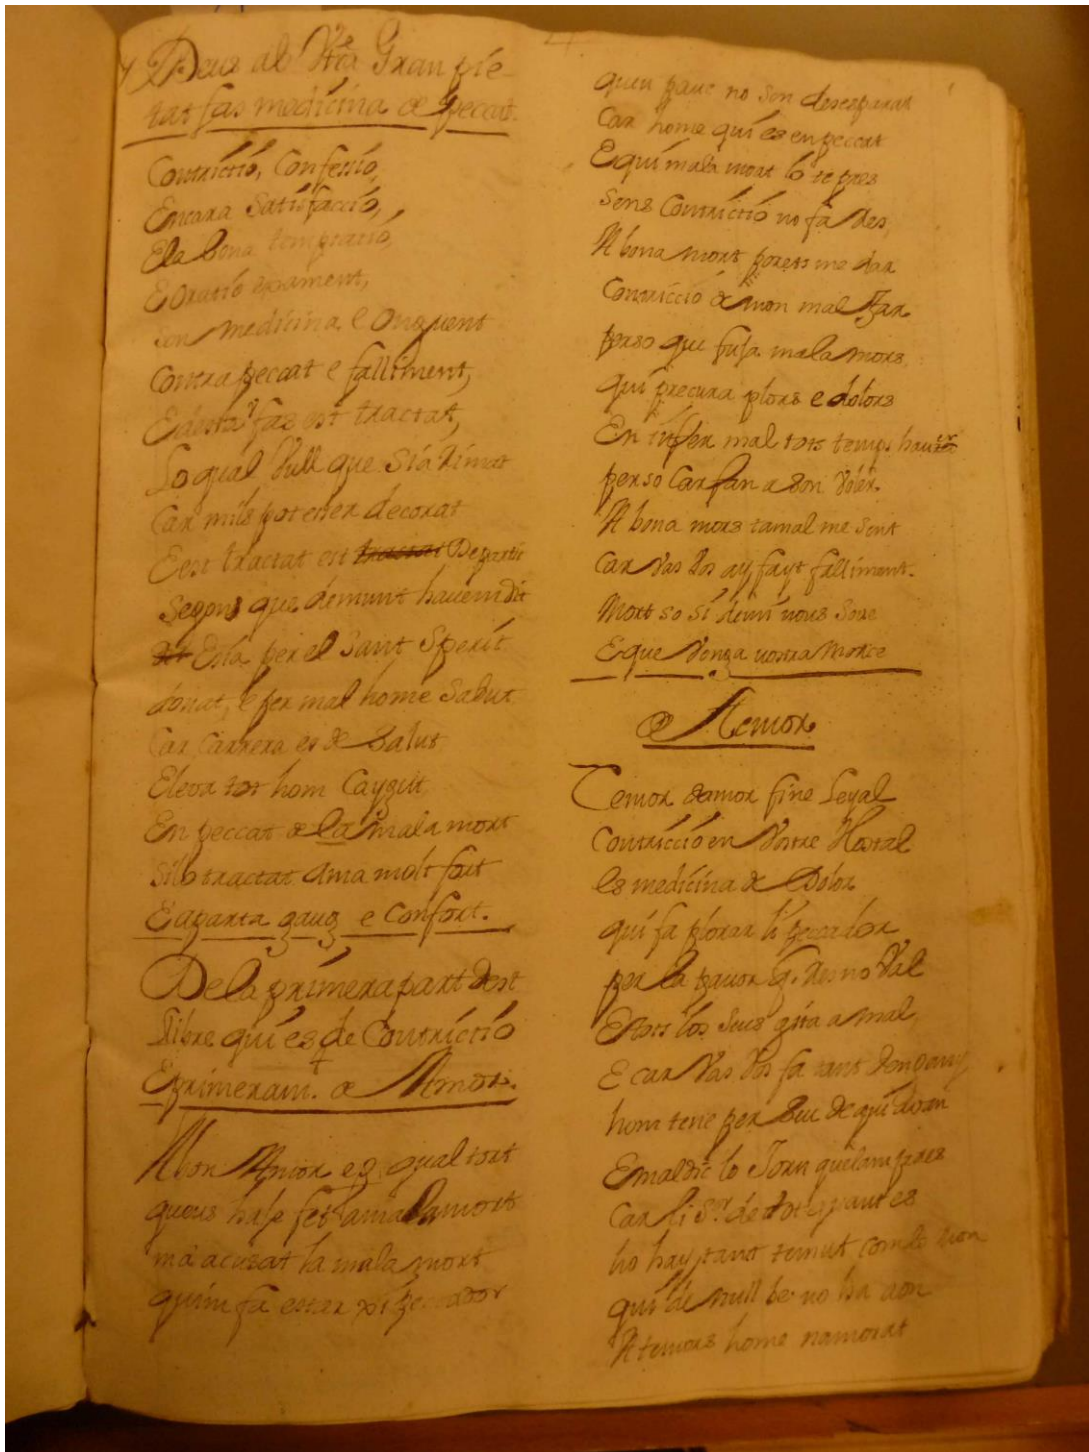 Deus ab Vra Gran pie-
tat fas medicina de peccat.
Contrictió, Confessió,
Encara Satisfacció,
E la bona temptatió,
E Oratio exament,
son medicina e Onguent
Contra peccat e falliment,
E d'esta fas est tractat,
Lo qual Vull que Sia Rimat
Car mils pot esser decorat
E est tractat est Departit
Segons que demunt havem dit
E sia per el Sant Sperit
donat, e per mal home Sabut
Car Carrera es de Salut
E levar tot hom Caygut,
En peccat de la mala mort
si lo tractat ama molt fort
E aparta gaug e Confort.
De la primera part dest
Llibre qui es de Contrictió
E primeram. de Amor.
A bon Amor e qual tort
queus haja fet a mala mort
m'à acusat la mala mort
quim fa estar peccador
quen pauc no son desesperat
Car home qui es en peccat
E qui mala mort lo te pres
Sens Contrictió no fa res,
A bona mort porets me dar
Contricció de mon mal
perso que fuja mala mors,
qui precura plors e dolors
En infern mal tots temps haver
perso Car fan a son Voler.
A bona mors tamal me Sent
Car Vas Vos ay fayt falliment.
Mort so si
E que Venga vostra Merce
de Temor
Temor damor fine Leyal
Contricció en Vostre Hostal
Es medicina de Dolor
qui fa plorar li peccador
per la pauor q. res no Val
E tots los Seus gita a mal,
E car Vas Vos fa tant dengany
hom tene per Seu de qui
E maldic lo Jorn quel am pres
Car li Sr. de tot
ho hay tant temut com lo mon
qui de null be no ha aon
A temors home namorat